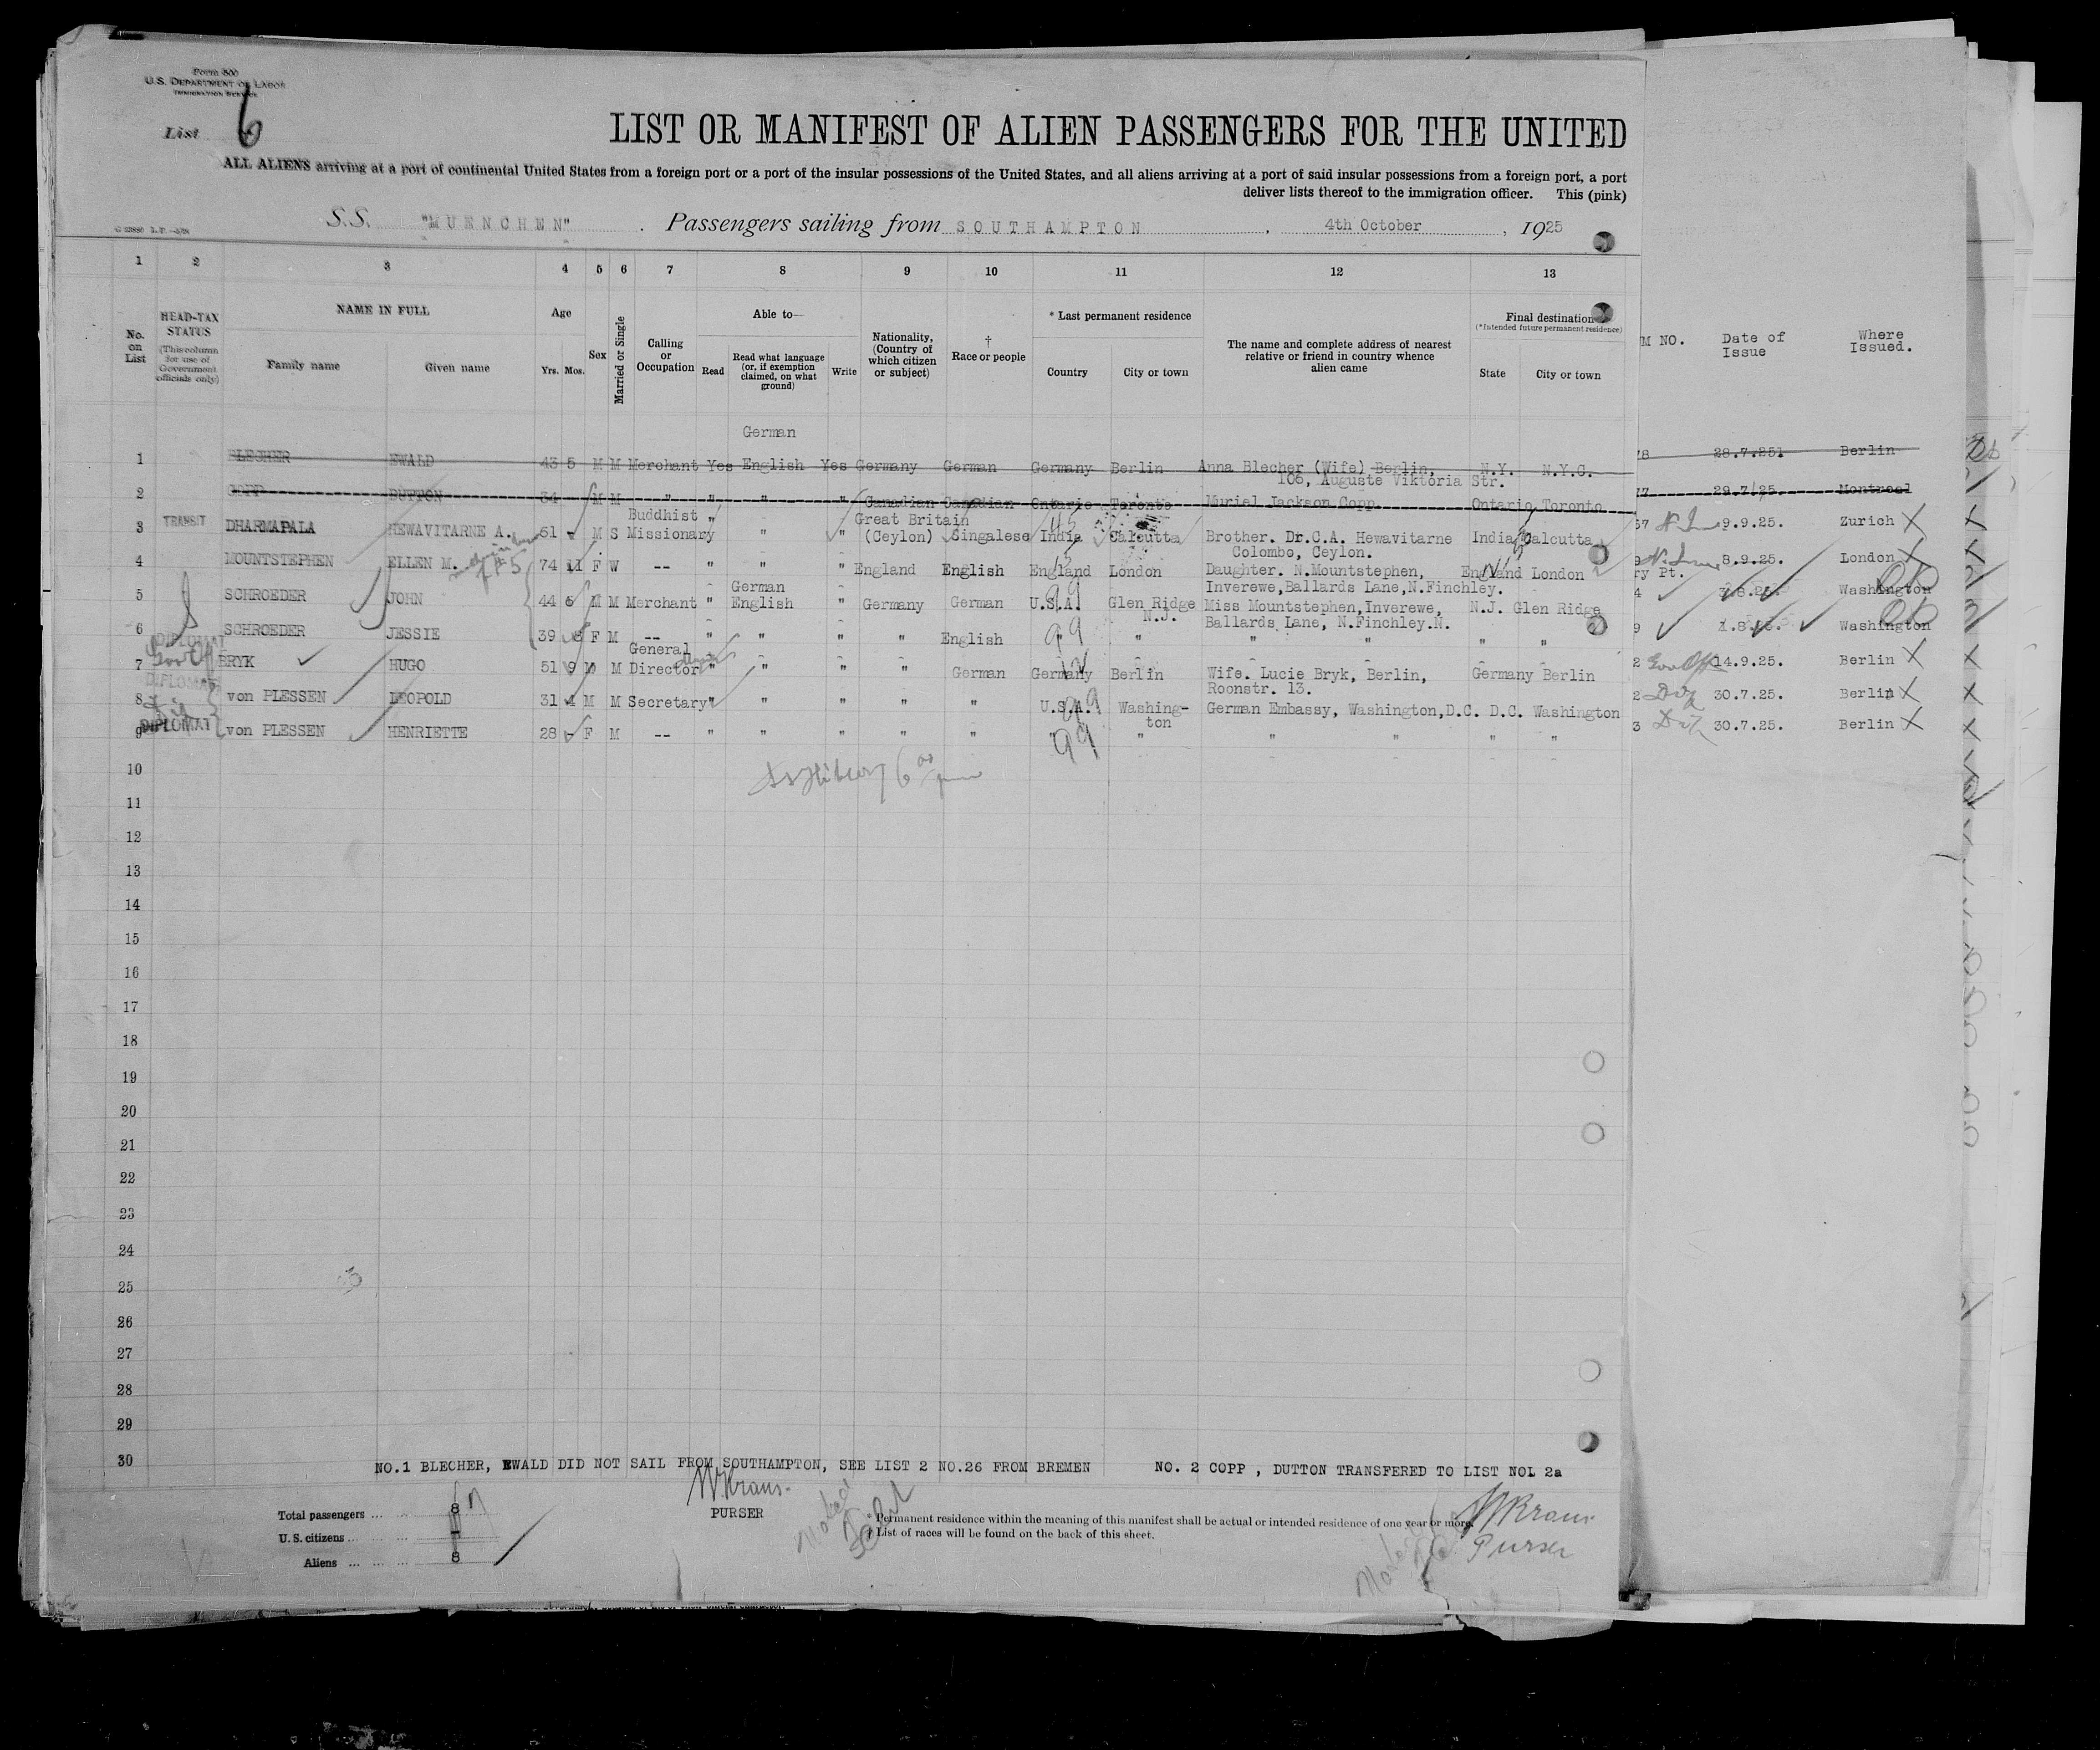 Form 500
U.S. DEPARTMENT OF LABOR
IMMIGRATION SERVICE
List 6
LIST OR MANIFEST OF ALIEN PASSENGERS FOR THE UNITED
ALL ALIENS arriving at a port of continental United States from a foreign port or a port of the insular possessions of the United States, and all aliens arriving at a port of said insular possessions from a foreign port, a port
deliver lists thereof to the immigration officer. This (pink)
S.S. "MUENCHEN" . Passengers sailing from SOUTHAMPTON , 4th October , 1925
1 2 3 4 5 6 7 8 9 10 11 12 13
No. on List
HEAD-TAX STATUS
(This column for use of Government officials only)
NAME IN FULL
Family name Given name
Age
Yrs. Mos.
Sex
Married or Single
Calling or Occupation
Able to—
Read
Read what language (or, if exemption claimed, on what ground)
Write
Nationality, (Country of which citizen or subject)
† Race or people
* Last permanent residence
Country City or town
The name and complete address of nearest relative or friend in country whence alien came
Final destination
(*Intended future permanent residence)
State City or town
M NO. Date of Issue Where Issued.
German
1 BLECHER EWALD 43 5 M M Merchant Yes English Yes Germany German Germany Berlin Anna Blecher (Wife) Berlin, N.Y. N.Y.C. 78 28.7.251 Berlin
106, Auguste Viktoria Str.
2 COPP DUTTON 34 - M M " " " " Canadian Canadian Ontario Toronto Muriel Jackson Copp. Ontario Toronto 77 29.7.25. Montreal
Buddhist " Great Britain
3 TRANSIT DHARMAPALA HEWAVITARNE A. 51 - M S Missionary " " (Ceylon) Singalese India Calcutta Brother. Dr.C.A. Hewavitarne India Calcutta 67 9.9.25. Zurich
Colombo, Ceylon.
4 MOUNTSTEPHEN ELLEN M. 74 11 F W -- " " " England English England London Daughter. N.Mountstephen, England London 9 8.9.25. London
Inverewe,Ballards Lane,N.Finchley. ry Pt.
German
5 SCHROEDER JOHN 44 6 M M Merchant " English " Germany German U.S.A. Glen Ridge Miss Mountstephen,Inverewe, N.J. Glen Ridge 4 Washington
N.J. Ballards Lane, N.Finchley.N.
6 SCHROEDER JESSIE 39 8 F M -- " " " " English 99 " " " " " 9 Washington
DIPLOMAT
General
7 BRYK HUGO 51 9 M M Director " " " " German Germany Berlin Wife. Lucie Bryk, Berlin, Germany Berlin 2 Gov Off 14.9.25. Berlin
Roonstr. 13.
DIPLOMAT
8 von PLESSEN LEOPOLD 31 4 M M Secretary " " " " " U.S.A. Washing-ton German Embassy, Washington,D.C. D.C. Washington 2 30.7.25. Berlin
DIPLOMAT
9 von PLESSEN HENRIETTE 28 - F M -- " " " " " 99 " " " " " 3 30.7.25. Berlin
10
11
12
13
14
15
16
17
18
19
20
21
22
23
24
25
26
27
28
29
30
NO.1 BLECHER, EWALD DID NOT SAIL FROM SOUTHAMPTON, SEE LIST 2 NO.26 FROM BREMEN NO. 2 COPP , DUTTON TRANSFERED TO LIST NOL 2a
WKraus.
PURSER
Total passengers ... 8
U.S. citizens ... -
Aliens ... 8
* Permanent residence within the meaning of this manifest shall be actual or intended residence of one year or more.
† List of races will be found on the back of this sheet.
WKraus
Purser